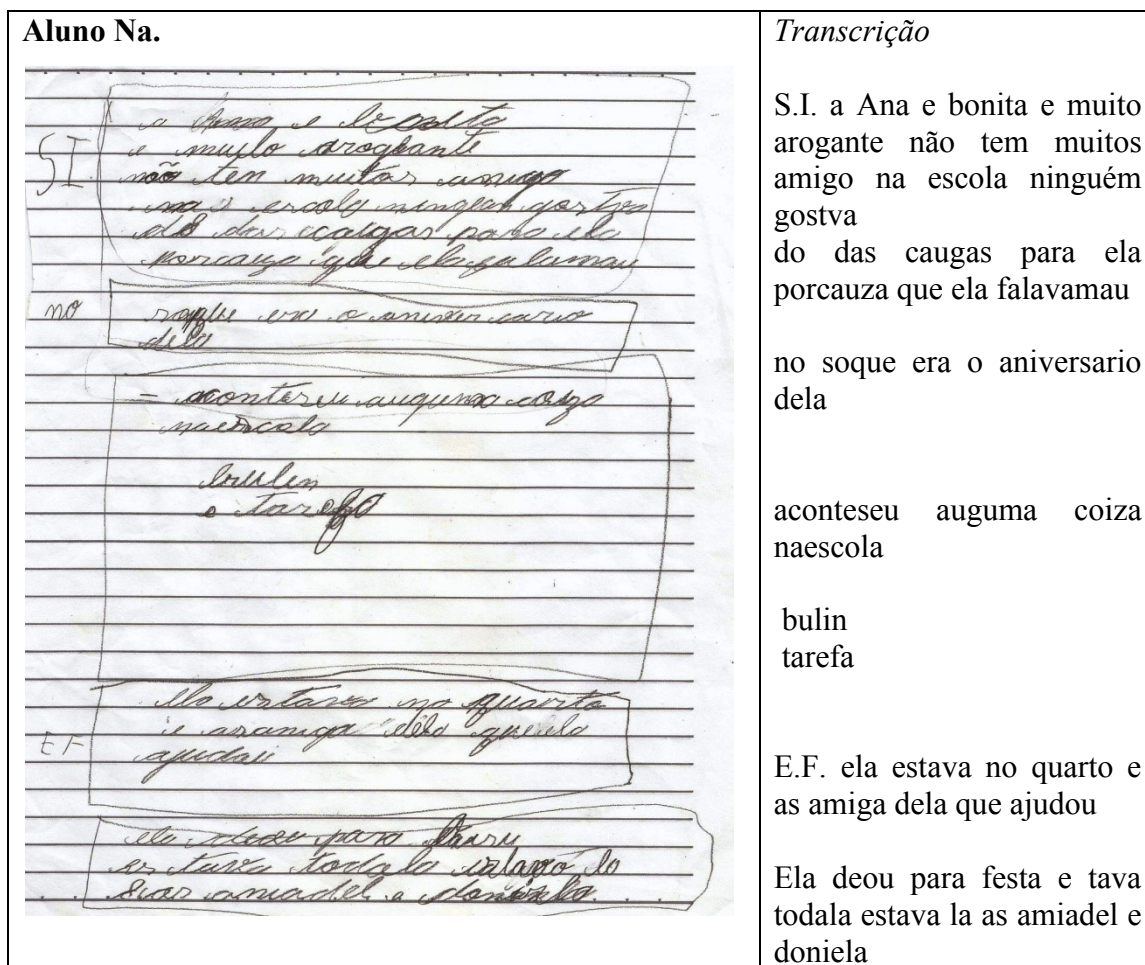 Aluno Na.
SI
a Ana e bonita
e muito arogante
não tem muitos amigo
na escola ningem gostva
do das caugas para ela
porcauza que ela falamau
no soque era o aniversario
dela
= aconteseu auguma coiza
naescola
bulin
e tarefa
EF
ela estava no quarto
e asamiga dela que ela
ajudau
ela deou para
es tava todala
e doniela
Transcrição
S.I. a Ana e bonita e muito
arogante não tem muitos
amigo na escola ninguém
gostva
do das caugas para ela
porcauza que ela falavamau
no soque era o aniversario
dela
aconteseu auguma coiza
naescola
bulin
tarefa
E.F. ela estava no quarto e
as amiga dela que ajudou
Ela deou para festa e tava
todala estava la as amiadel e
doniela